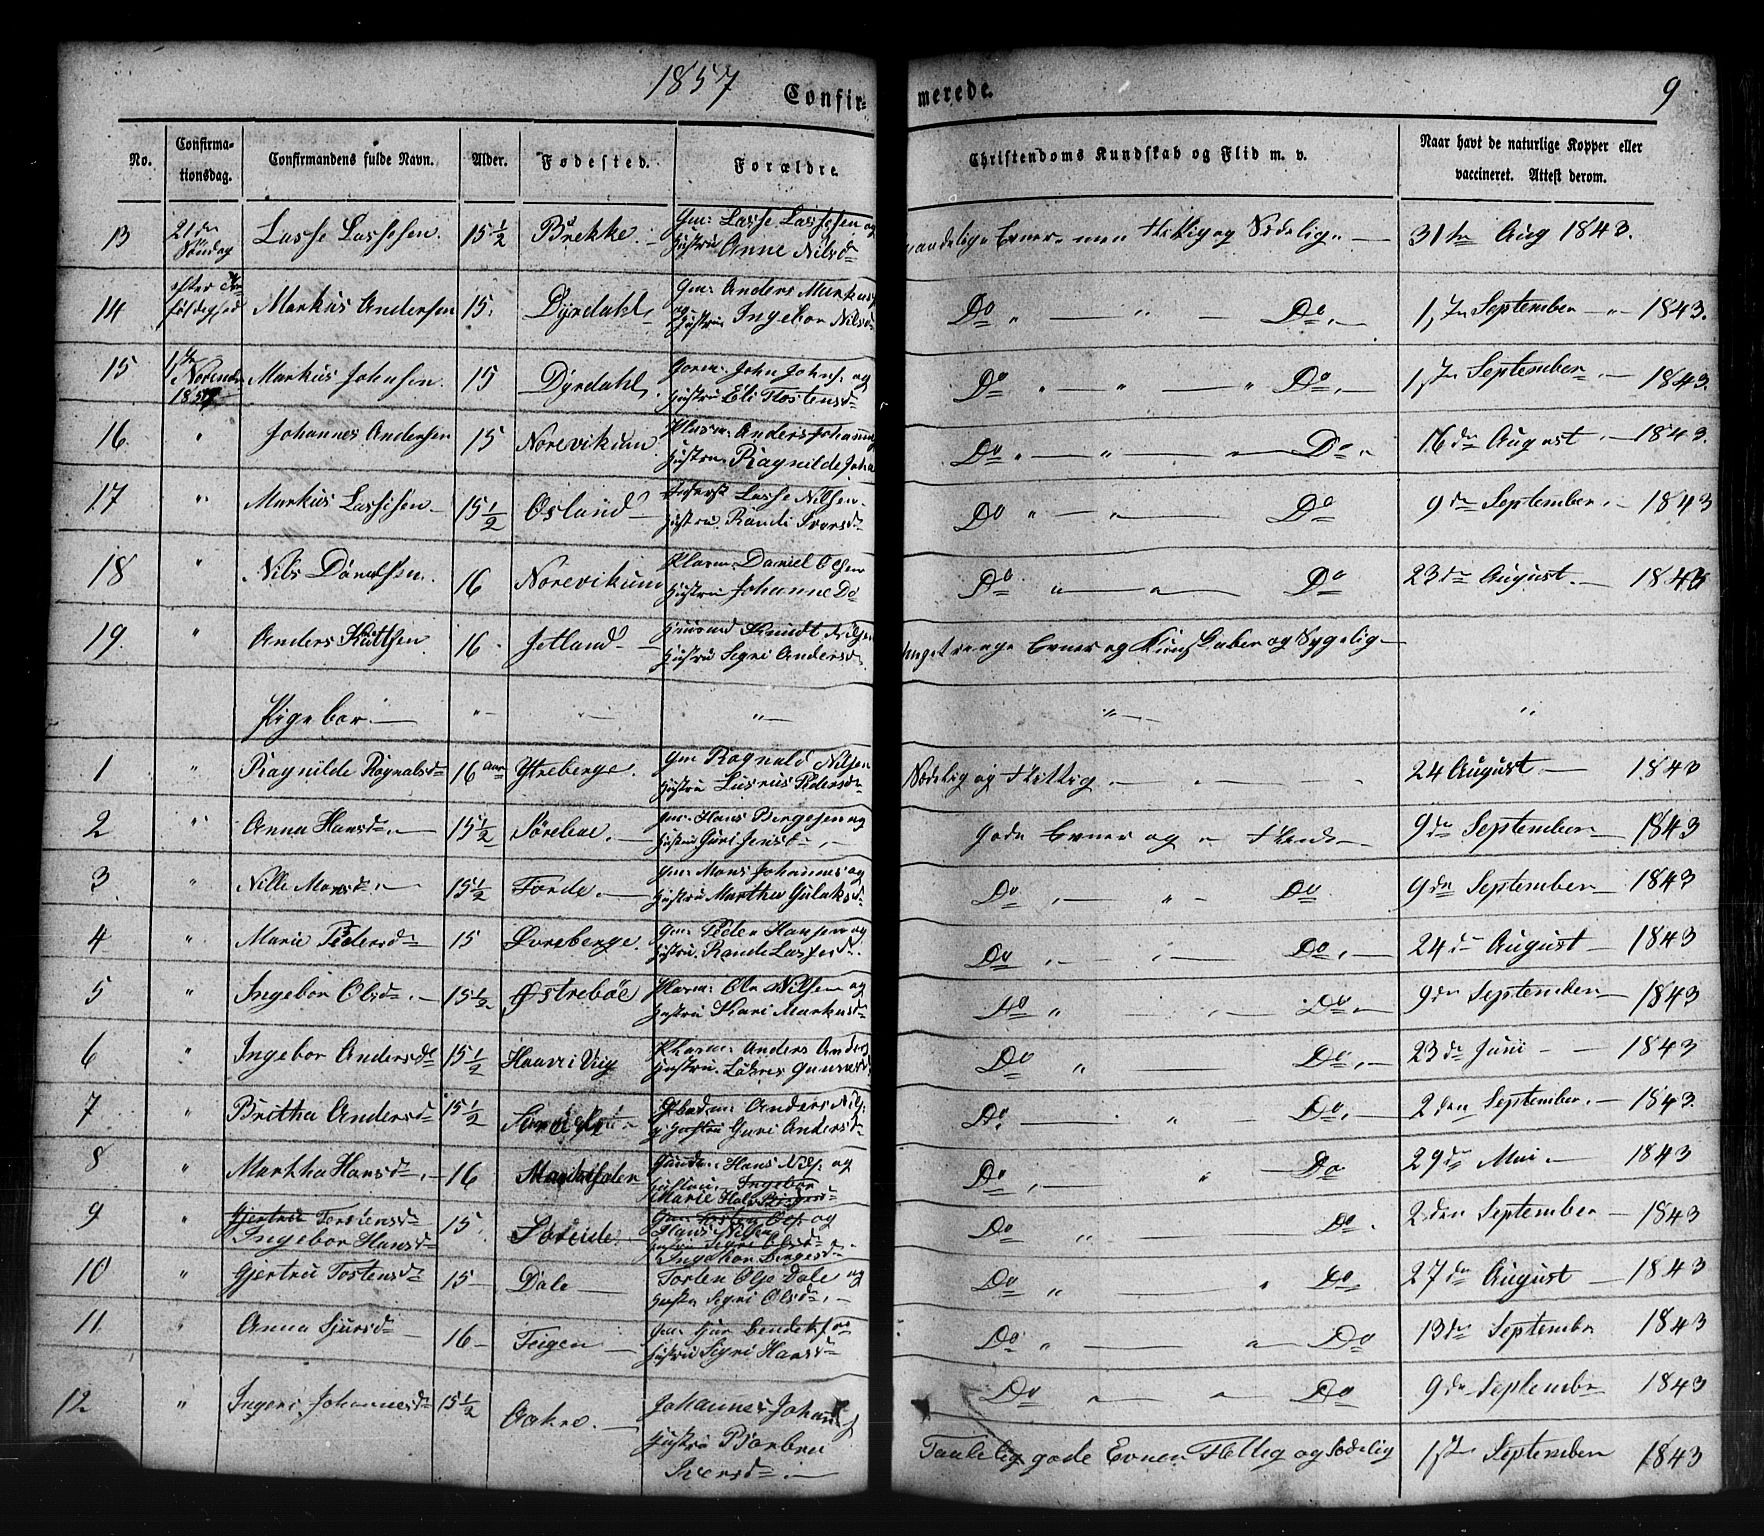 1857 Confir- merede. 9
No. Confirma- tionsdag. Confirmandens fulde Navn. Alder. Fødested. Forældre. Christendoms Kundskab og Flid m. v. Naar havt de naturlige Kopper eller vaccineret. Attest derom.
13 21de Søndag Lasse Lassesen. 15 1/2 Brekke. Gm: Lasse Lassesen og Hustru Anne Nilsd. Evner men flittig og Sædelig 31te Aug 1843.
14 efter Markus Andersen 15. Dyrdahl Gm: Anders Markus og Hustru Ingebor Nilsd Do " — " - Do — 1ste September - " - 1843.
15 1ste Novemb 1857 Markus Johnsen. 15 Dyrdahl. John Johns. og Hustru Eli Tostensd Do " " — " Do 1ste September — 1843.
16. " Johannes Andersen 15 Norevikum. Plasm. Anders Johannes Hustru Ragnilde Joha Do " — " — Do " 16de August — 1843.
17 " Markus Lassesen — 15 1/2 Osland — Lasse Nilsen Hustru Randi Iversd Do " — " — Do 9de September — 1843
18 " Nils Danielsen. 16 Norevikum Plasm. Daniel Olsen Hustru Johanne Do Do " — " — Do 23de August. — 1843
19. " Anders Knutsen 16 - Jetland — Knudt Nilsen Hustru Segri Andersd Evner og Kunskaber og Sygelig -
Pigebør. — " - — " — " —  "
1 " Ragnilde Ragnalsd 16 aar Ytreberge. Gm Ragnald Nilsen Hustru Pedersd Sædelig og flittig — 24 August. — 1843
2 " Anna Hansd. — 15 1/2 Sørebøe. Gm: Hans Birgesen og Hustru Guri Jensd — Gode Evner og — 9de September — 1843
3 " Nille Monsd. — 15 1/2 Førde. — Gm: Mons Johannes og Hustru Martha Gulaksd Do — " - Do 9de September 1843
4 " Marie Pedersd 15 Øvreberge. Gm: Peder Hansen og Hustru. Rande Lassesd. Do — Do — 24de August — 1843
5 " Ingebor Olsd. — 15 1/2 Østrebøe Plasm: Ole Nilsen og Hustru Kari Markusd Do " — Do — 9de September — 1843
6 " Ingebor Andersd 15 1/2 Anders Anders Hustru. Do " Do — 23de Juni - - 1843
7 " Britha Andersd 15 1/2 Anders Nils. og Hustru Guri Andersd Do. — " Do — 2den September. — 1843.
8 " Martha Hansd. — 16 Hans Nils. og Hustru Ingebor Marie Do — " Do 29de Mai. — 1843
9 " Gjertru Ingebor Hansd 15. Søreide. og Hans Nilsen Hustru Segri Olsd Ingebor Birgesd Do " Do - 2den September — 1843
10 " Gjertru Tostensd 15 - Dale — Tosten Ols. Dale og Hustru Segri Olsd. — Do " " Do 27de August — 1843
11. " Anna Sjursd — 16 - Teigen — Gm: Sjur Hustru Segri Hansd Do " — " Do 13de September 1843
12 " Ingeri Johannesd 15 1/2 Johannes Johan Hustru Barbru Iversd — Do " " Do 9de September 1843
gode Evner Flittig og Sædelig 1ste September 1843